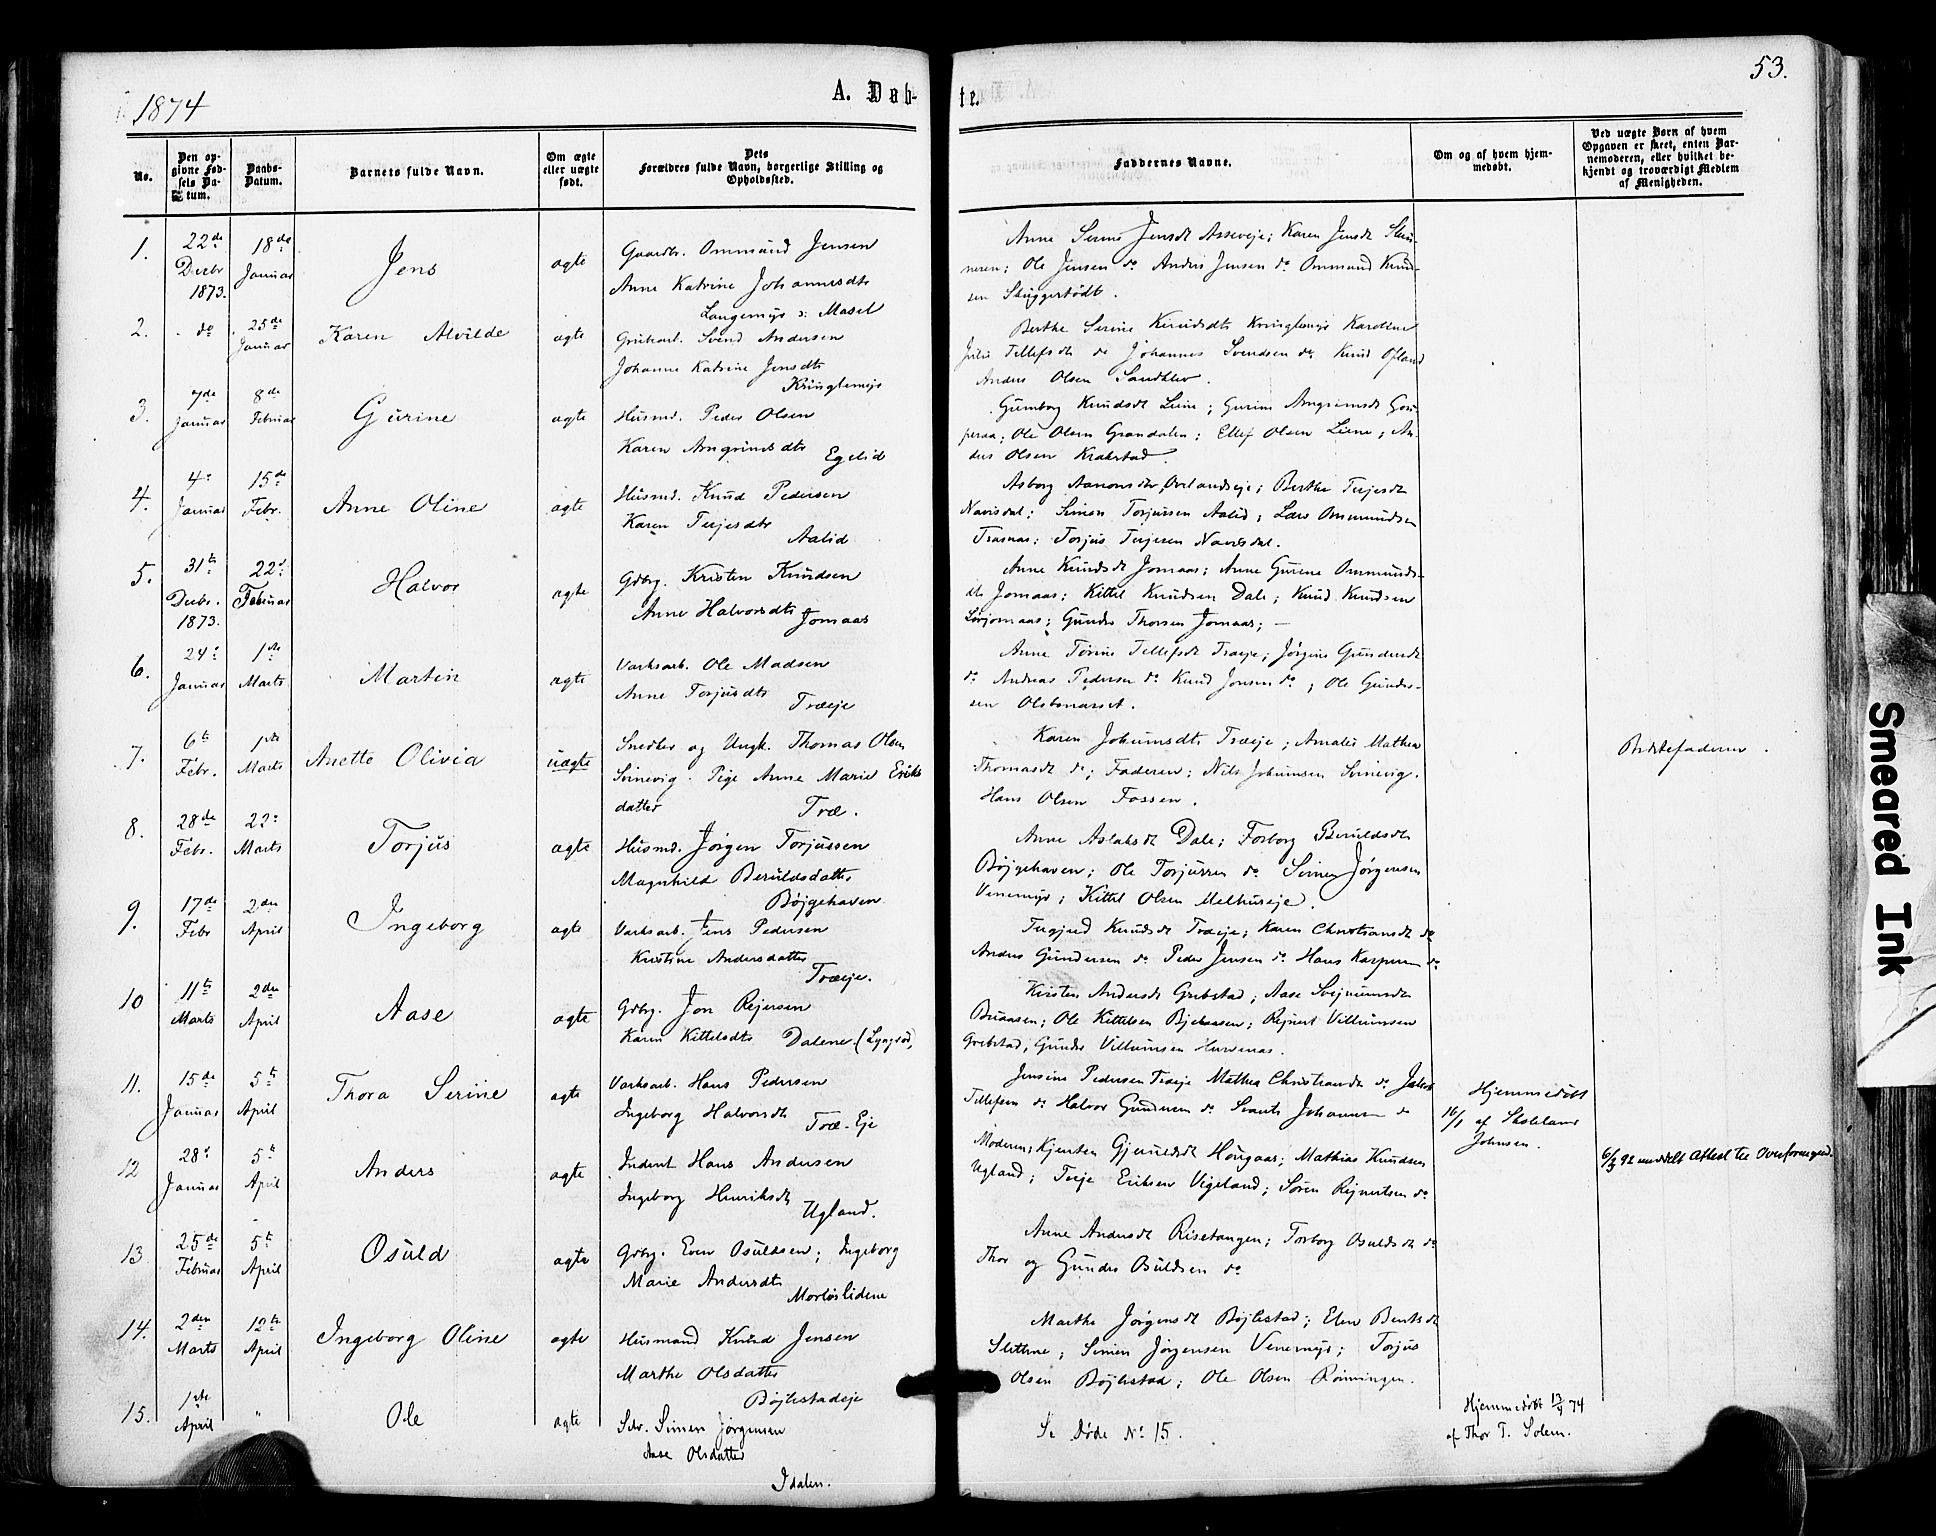 1874
A. Døb-
te.
53.
No.
Den op-
givne Fød-
sels Da-
tum.
Daabs-
Datum.
Barnets fulde Navn.
Om ægte
eller uægte
født.
Dets
Forældres fulde Navn, borgerlige Stilling og
Opholdssted.
Faddernes Navne.
Om og af hvem hjem-
medøbt.
Ved uægte Børn af hvem
Opgaven er skeet, enten Bar-
nemoderen, eller hvilket be-
kjendt og troværdigt Medlem
af Menigheden.
1.
22de
Decbr
1873.
18de
Januar
Jens
ægte
Gaardbr. Ommund Jensen
Anne Katrine Johannesdtr
Langemyr
Anne Serine Jensdt Asseveje; Karen Jensdt
Ole Jensen do Anders Jensen do Ommund Knud-
sen
2.
do
25de
Januar
Karen Alvilde
ægte
Grubearb. Svend Andersen
Johanne Katrine Jensdtr
Kringlemyr
Berthe Serine Knudsdtr Kringlemyr Karoline
Tellefsdt do Johannes Svendsen do Knud
Anders Olsen Sandklev.
3.
7de
Januar
8de
Februar
Gurine
ægte
Husmd. Peder Olsen
Karen Arngrimsdtr
Egelid
Gunborg Knudsdt Liene; Gurine Arngrimsdt
Ole Olsen Grøndalen; Ellef Olsen Liene; An-
ders Olsen Krabstad.
4.
4.
Januar
15de
Febr.
Anne Oline
ægte
Husmd. Knud Pedersen
Karen Terjesdtr
Aalid
Asborg Aanonsdtr, Berthe Terjesdt
Navisdal; Simon Torjussen Aalid; Lars Ommundsen
Torjus Terjesen Navisdal.
5.
31te
Decbr.
1873.
22de
Februar
Halvor
ægte
Gdbr. Kristen Knudsen
Anne Halvorsdtr
Jomaas
Anne Knudsdt Jomaas; Anne Gurine Ommunds-
dt Jomaas; Kittel Knudsen Dale; Knud Knudsen
Gunder Thorsen Jomaas; —
6.
24.
Januar
1ste
Marts
Martin
ægte
Værksarb. Ole Madsen
Anne Torjusdtr
Træeje
Anne Torine Tellefsdt Træeje; Jørgine Gundersdt
do Andreas Pedersen do Knud Jonsen do; Ole Gunders-
sen
7.
6te
Febr.
1ste
Marts
Anette Olivia
uægte
Snedker og Ungk. Thomas Olsen
Svinevig. Pige Anne Marie Eriks
datter
Træ.
Karen Johansdtr Træeje; Amalie Mathea
Thomasdt do; Faderen; Nils Johansen Svinevig.
Hans Olsen Fossen.
Barnefaderen.
8.
28de
Febr.
22.
Marts
Torjus
ægte
Husmd. Jørgen Torjussen
Magnhild Beruldsdatter
Bøjgehaven
Anne Aslaksdt Dale; Torborg Beruldsdtr
Bøjgehaven; Ole Torjussen do Simen Jørgensen
Venemyr; Kittel Olsen Melhuseje.
9.
17de
Febr
2den
April
Ingeborg
ægte
Værksarb. Jens Pedersen
Kristine Andersdatter
Træeje.
Knudsdt Træeje; Karen Christiansdt do
Anders Gundersen do Peder Jensen do Hans Kaspersen do
10
11te
Marts
2den
April
Aase
ægte
Gdbr. Jon Rejersen
Karen Kittelsdtr Dalene
Kirsten Andersdt Grebstad; Aase
Ole Kittelsen Rejnert Villumsen
Grebstad; Gunder Villumsen
11.
15de
Januar
5te
April
Thora Serine
ægte
Værksarb. Hans Pedersen
Ingeborg Halvorsdt
Træ-Eje
Jensine Pedersen Træeje Mathea Christiansdt do Jakob
Tellefsen do Halvor Gundersen do Johannsen do
Hjemmedøbt
16/1 af
Johnsen.
12
28.
Januar
5te
April
Anders
ægte
Inderst Hans Andersen
Ingeborg Henriksdt
Ugland.
Moderen; Kjersten Mathias Knudsen
Ugland; Terje Eriksen Vigeland; Søren Rejnertsen do
6/3 92 meddelt Attest
13
25de
Februar
5te
April
Osuld
ægte
Gdbr. Even Osuldsen; Ingeborg
Marie Andersdtr
Mortøslidene
Anne Andersdt Risetangen; Torborg Osuldsdt do
Thor og Gunder Osuldsen do
14.
2den
Marts
12te
April
Ingeborg Oline
ægte
Husmand Knud Jensen
Marthe Olsdatter
Bøjlestadeje
Marthe Jørgensdt Bøjlestad; Elen Berthsdt
Slettene; Simen Jørgensen Venemyr; Torjus
Olsen Bøjlestad; Ole Olsen Rønningen.
15.
1ste
April
"
Ole
ægte
Selv. Simen Jørgensen
Aase Olsdatter
Idalen.
Se Døde No 15.
Hjemmedøbt 13/4 74
af Thor T. Solem.
Smeared Ink